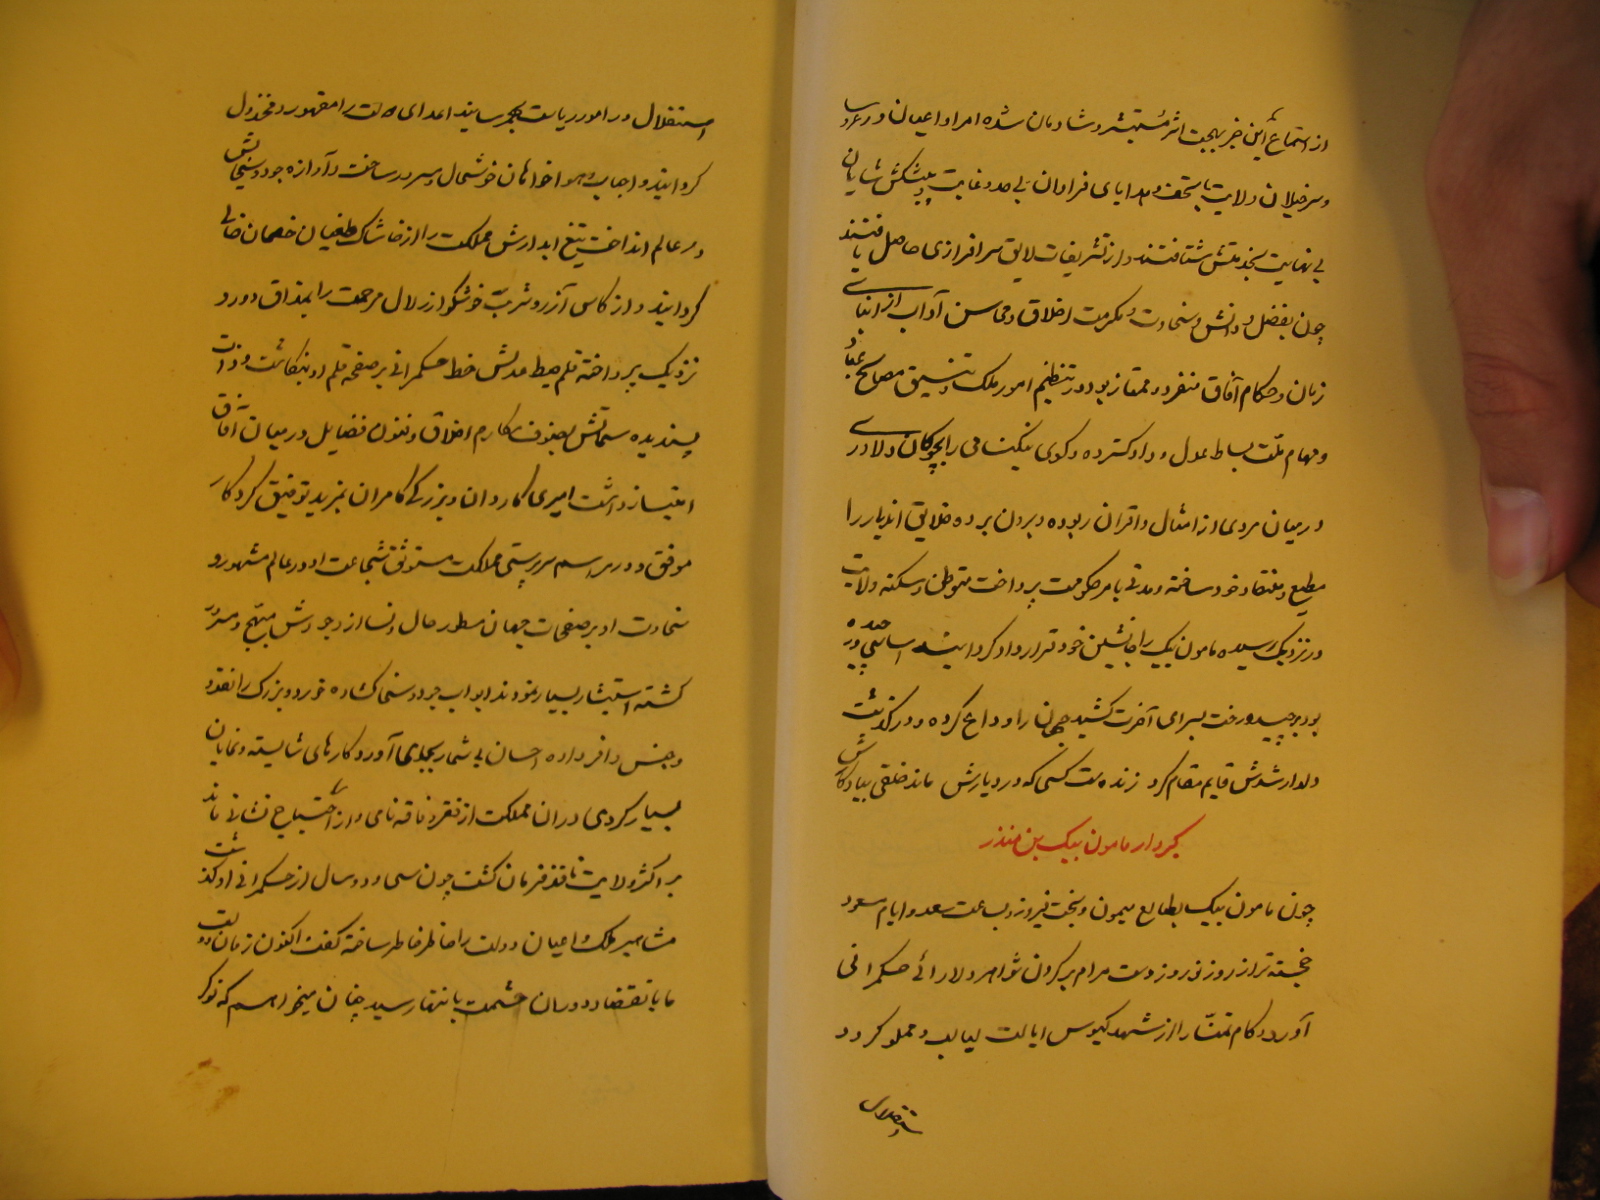 از استماع این خبر بهجت اثر مستبشر و شادمان شده امرا و اعیان و رؤسا
و سرخیلان ولایت با تحف و هدایای فراوان بی حد و غایت و پیشکش شایان
بی نهایت بخدمتش شتافتند و از تشریفات لایق سرافرازی حاصل یافتند
چون بفضل و دانش و سخاوت و مکرمت اخلاق و محاسن آداب از ابنای
زمان و حکام آفاق منفرد و ممتاز بود و در تنظیم امور ملک و تنسیق مصالح عباد
و مهام ملت بساط عدل و داد کسترده و کوی نیکنامی را بچوکان دلاوری
در میان مردمی از امثال و اقران ربوده و بردن برده خلایق اندیار را
مطیع و منقاد خود ساخته و مدتی بامر حکومت پرداخت متوطن و سکنه ولایت
در نزدیک رسیده مامون بیک را جانشین خود قرار داد کردانیده
بود برچید و رخت بسرای آخرت کشید جهان را وداع کرده و درکذشت
ولد ارشدش قایم مقام کرد زنده است کسی که در دیارش ماند خلفی بیادکارش
کردار مامون بیک بن منذر
چون مامون بیک بطالع میمون و بخت فیروز و بساعت سعد و ایام مسعود
خجسته تر از روز نوروز دست مرام بر کردن شواهر دلارائی حکمرانی
آورد و کام تمنا را از شهد کیوس ایالت لبالب و مملو کرد و
استقلال
استقلال در امور ریاست بهم رسانید اعدای دولت را مقهور و مخذول
کردانید و احباب و هواخواهان خوشحال و مسرور ساخت و آوازه جود و سخایش
در عالم انداخت تیغ ابدارش مملکت را از خاشاک طغیان خصمان خالی
کردانید و از کاس آرزو شربت خوشکوار زلال مرحمت را بمذاق دور و
نزدیک پرداخته قلم محیط عدلش خط حکمرانی بر صفحه قلم او بنکاشت و ذات
پسندیده سماتش بصنوف مکارم اخلاق و فنون فضایل در میان آفاق
امتیاز داشت امیری کاردان و بزرکی کامران بمزید توفیق کردکار
موفق و در مراسم سرپرستی مملکت مستوثق شجاعت او در عالم مشهور و
سخاوت او بر صفحات جهان مسطور رجال و نسا از وجودش مبتهج و مسرور
کشته استبشار بسیار نمودند ابواب جود و سخا کشاده خورد و بزرک را نقد و
جنس وافر داده احسان بی شمار بجای آورد و کارهای شایسته و نمایان
بسیار کردی در ان مملکت از فقر و فاقه نامی و از احتیاج نشانی نماند
بر اکثر ولایت نافذ فرمان کشت چون سی و دو سال از حکمرانی او کذشت
مشاهیر ملک و اعیان دولت را حاضر خاطر ساخته کفت اکنون زمان دولت
ما بانقضا و دوران حشمت بانتها رسید چنان میخواهم که نوکر